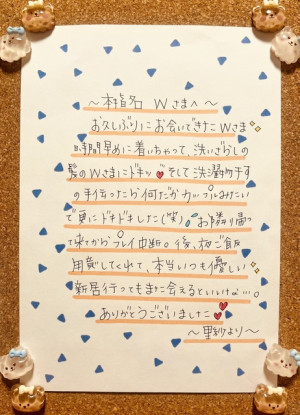 〜本指名 Wさまへ〜
お久しぶりにお会いできたWさま
時間早めに着いちゃって、洗いざらしの
髪のWさまにドキッ そして洗濯物干す
の手伝ったら何だかカップルみたい
で更にドキドキしました(笑) お隣り帰っ
て来てからプレイ中断。後、夜ご飯
用意してくれて、本当いつも優しい
新居行ってもまた会えるといいな…。
ありがとうございました
〜里紗より〜